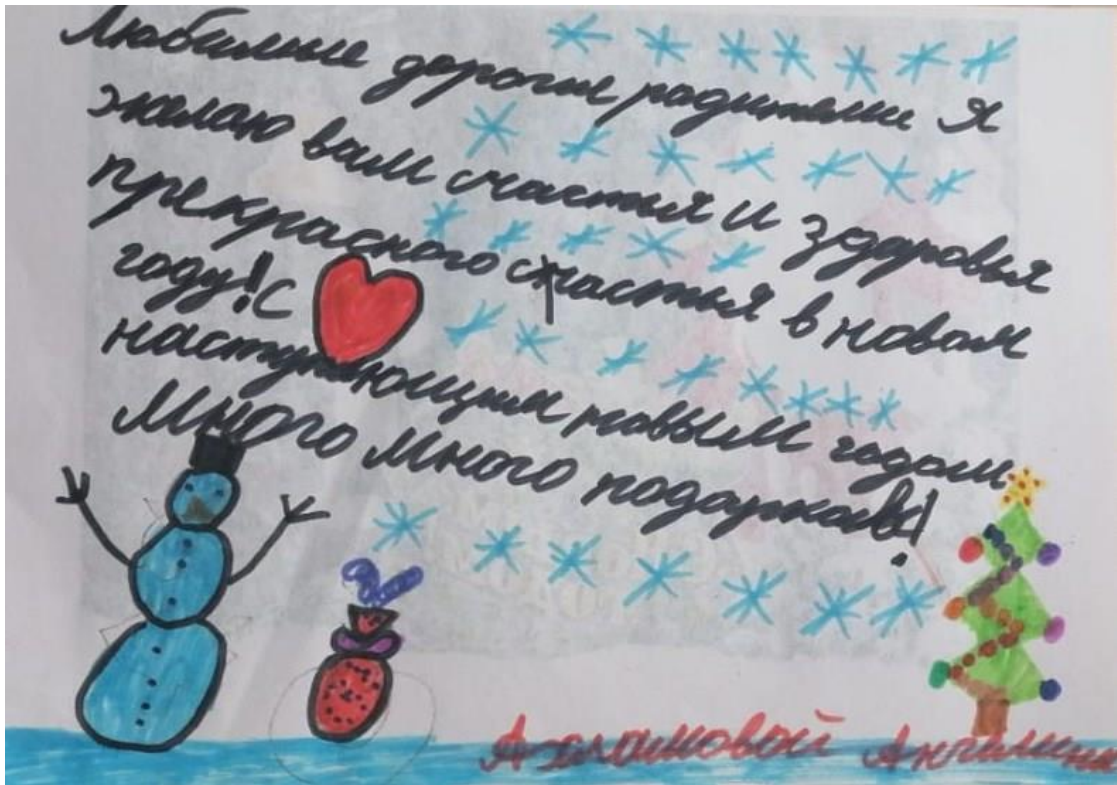 Любимые дорогие родители я
желаю вам счастья и здоровья
прекрасного счастья в новом
году! С
наступающим новым годом
много много подарков!